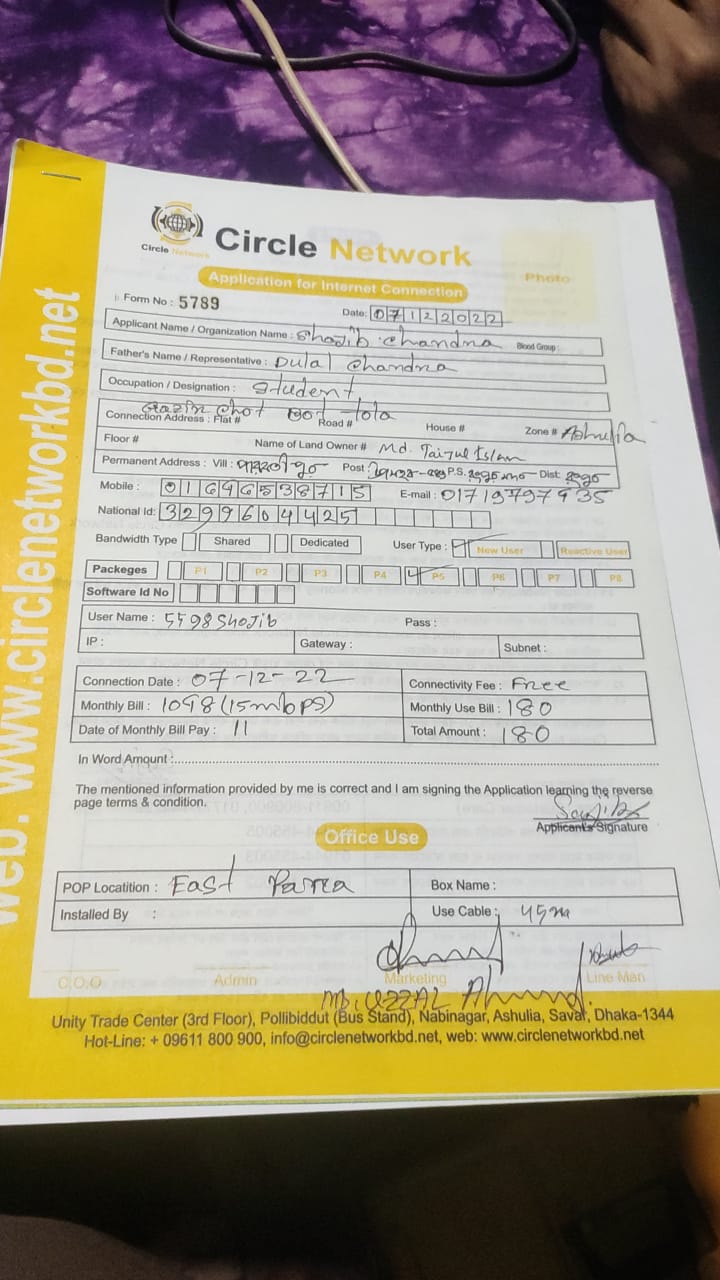 Circle Network
Circle Network
Application for Internet Connection
Photo
Form No : 5789
Date: 07122022
Applicant Name / Organization Name : Shojib chandra Blood Group:
Father's Name / Representative : Dulal chandra
Occupation / Designation : Student
Connection Address : Flat # Gazir chot Bot tola Road # House # Zone # Ashulia
Floor # Name of Land Owner # Md. Taizul Islam
Permanent Address : Vill : Post : P.S. Dist.
Mobile : 01646538715 E-mail : 01719797935
National Id: 3299604425
Bandwidth Type Shared Dedicated User Type : New User Reactive User
Packeges P1 P2 P3 P4 P5 P6 P7 P8
Software Id No
User Name : 5598Shojib Pass :
IP : Gateway : Subnet :
Connection Date : 07-12-22 Connectivity Fee : Free
Monthly Bill : 1098 (15mbps) Monthly Use Bill : 180
Date of Monthly Bill Pay : 11 Total Amount : 180
In Word Amount :
The mentioned information provided by me is correct and I am signing the Application learning the reverse
page terms & condition.
Applicant's Signature
Office Use
POP Locatition : East Parra Box Name :
Installed By : Use Cable : 45m
C.O.O Admin Marketing Line Man
MD. UZZAL Ahmed.
Unity Trade Center (3rd Floor), Pollibiddut (Bus Stand), Nabinagar, Ashulia, Savar, Dhaka-1344
Hot-Line: + 09611 800 900, info@circlenetworkbd.net, web: www.circlenetworkbd.net
web. www.circlenetworkbd.net